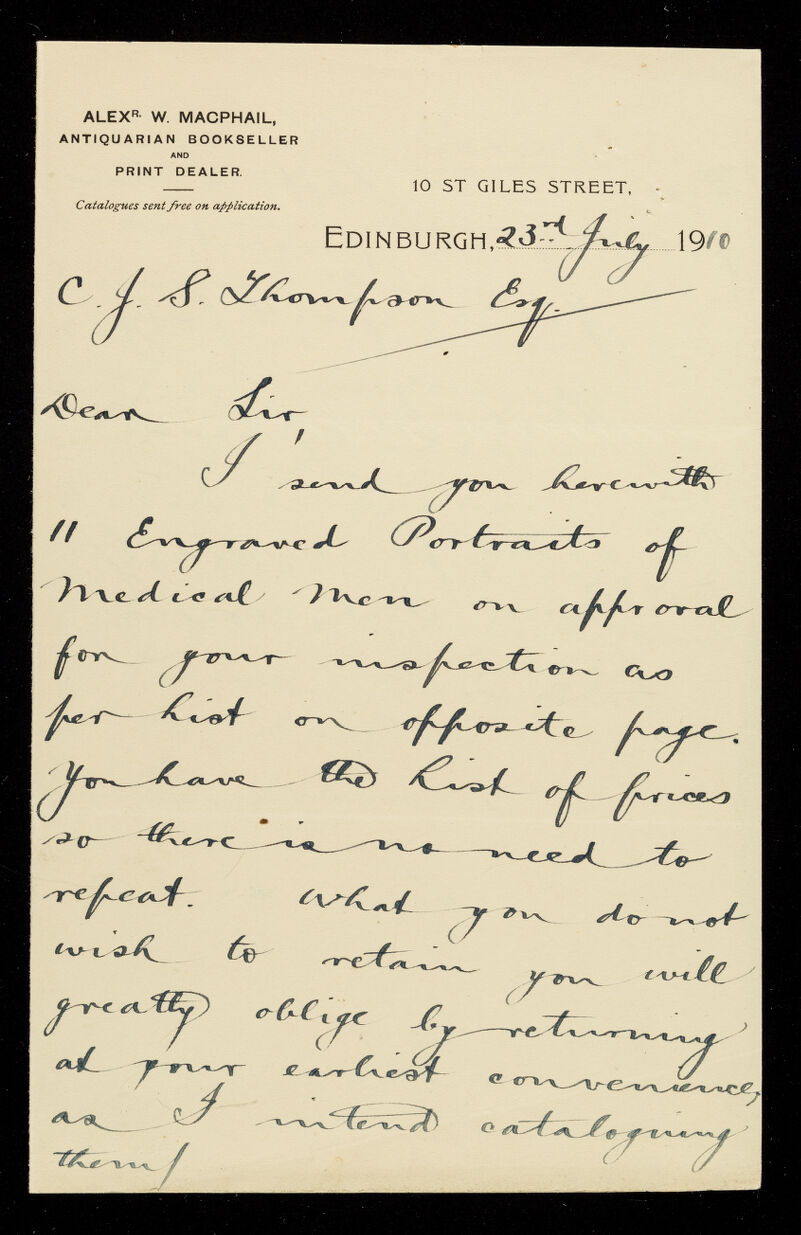 ALEXR. W. MACPHAIL,
ANTIQUARIAN BOOKSELLER
AND
PRINT DEALER.
Catalogues sent free on application.
10 ST GILES STREET,
EDINBURGH, 23rd July 1910
C. J. S. Thompson Esq.
Dear Sir,
I send you herewith
11 Engraved Portraits of
Medical Men on approval
for your inspection as
per list on opposite page.
You have the list of prices
so there is no need to
repeat. What you do not
wish to retain you will
greatly oblige by returning
at your earliest convenience,
as I intend cataloguing
them/